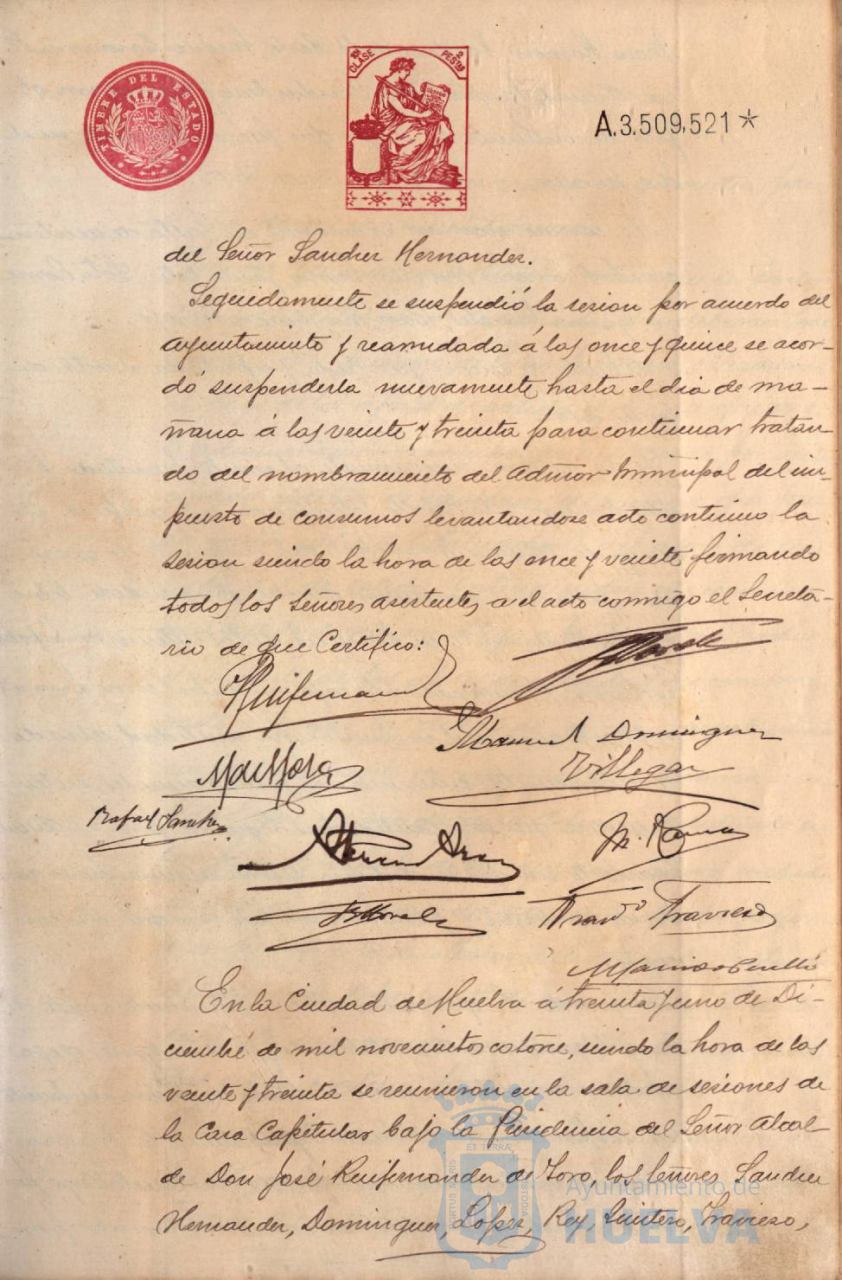 TIMBRE DEL ESTADO
10ª CLASE 2 PESTAS
A.3.509,521*
del Señor Sanchez Hernandez.
Seguidamente se suspendió la sesion por acuerdo del
ayuntamiento y reanudada á las once y quince se acor-
dó suspenderla nuevamente hasta el dia de ma-
ñana á las veinte y treinta para continuar tratan
do del nombramiento del Admor municipal del im-
puesto de consumos levantandose acto continuo la
sesion siendo la hora de las once y veinte firmando
todos los señores asistentes a el acto conmigo el Secreta-
rio de que Certifico:
Ruifernand
Manuel Dominguez
Villegas
M de Mora
Rafael Sanchez
Franco Travieso
En la Ciudad de Huelva á treinta y uno de Di-
ciembre de mil novecientos catorce, siendo la hora de las
veinte y treinta se reunieron en la sala de sesiones de
la Casa Capitular bajo la Presidencia del Señor Alcal
de Don José Ruifernandez de Toro, los Señores Sanchez
Hernandez, Dominguez, Lopez, Rey, Quintero, Travieso,
Ayuntamiento de
HUELVA